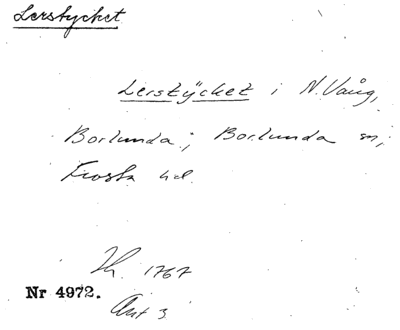 Lerstycket
Lerstÿcket i N. Vång,
Borlunda; Borlunda sn,
Frosta hd.
Lh. 1767
Nr 4972.
Akt 3